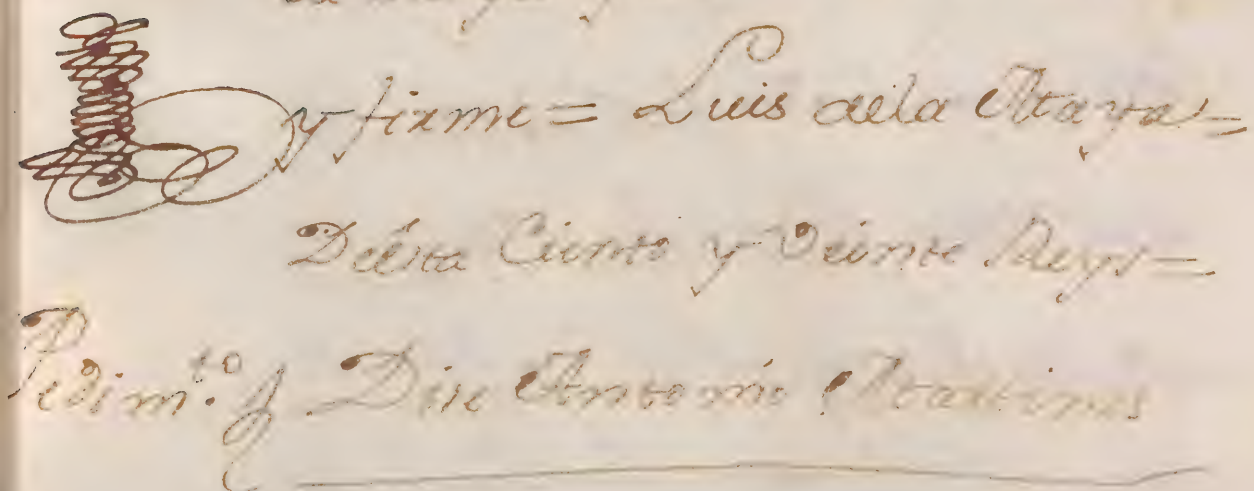 y firme = Luis dela Maya =
Desta Ciento y Veinte Reys =
Pedim.to Dise Antonio Martines